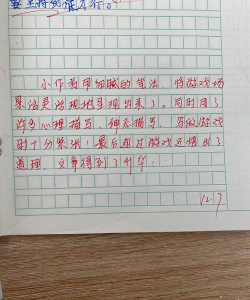 要坚持到底才行。
小作者用细腻的笔法，将游戏场
景活灵活现地呈现出来了。同时用了
许多心理描写、神态描写，写做游戏
时十分紧张！最后通过游戏还悟出了
道理，文章得到了升华。
12.7